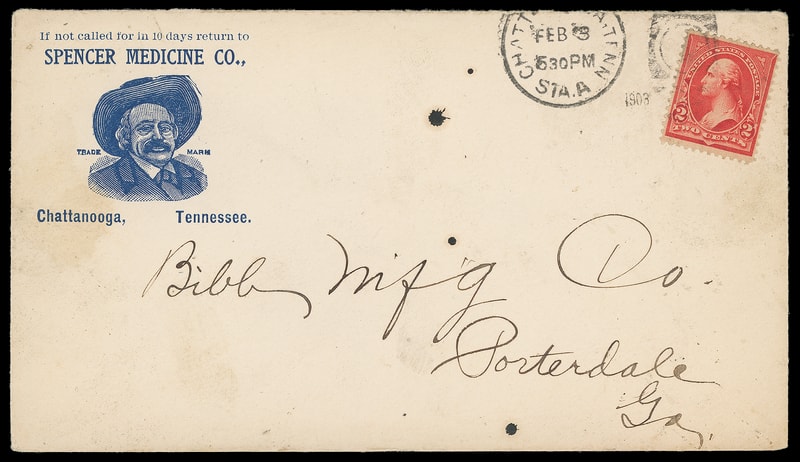 If not called for in 10 days return to
SPENCER MEDICINE CO.,
TRADE MARK
Chattanooga, Tennessee.
FEB 3
530PM
STA.A
TENN
1903
UNITED STATES POSTAGE
2 2
TWO CENTS
Bibb Mfg Co.
Porterdale
Ga,